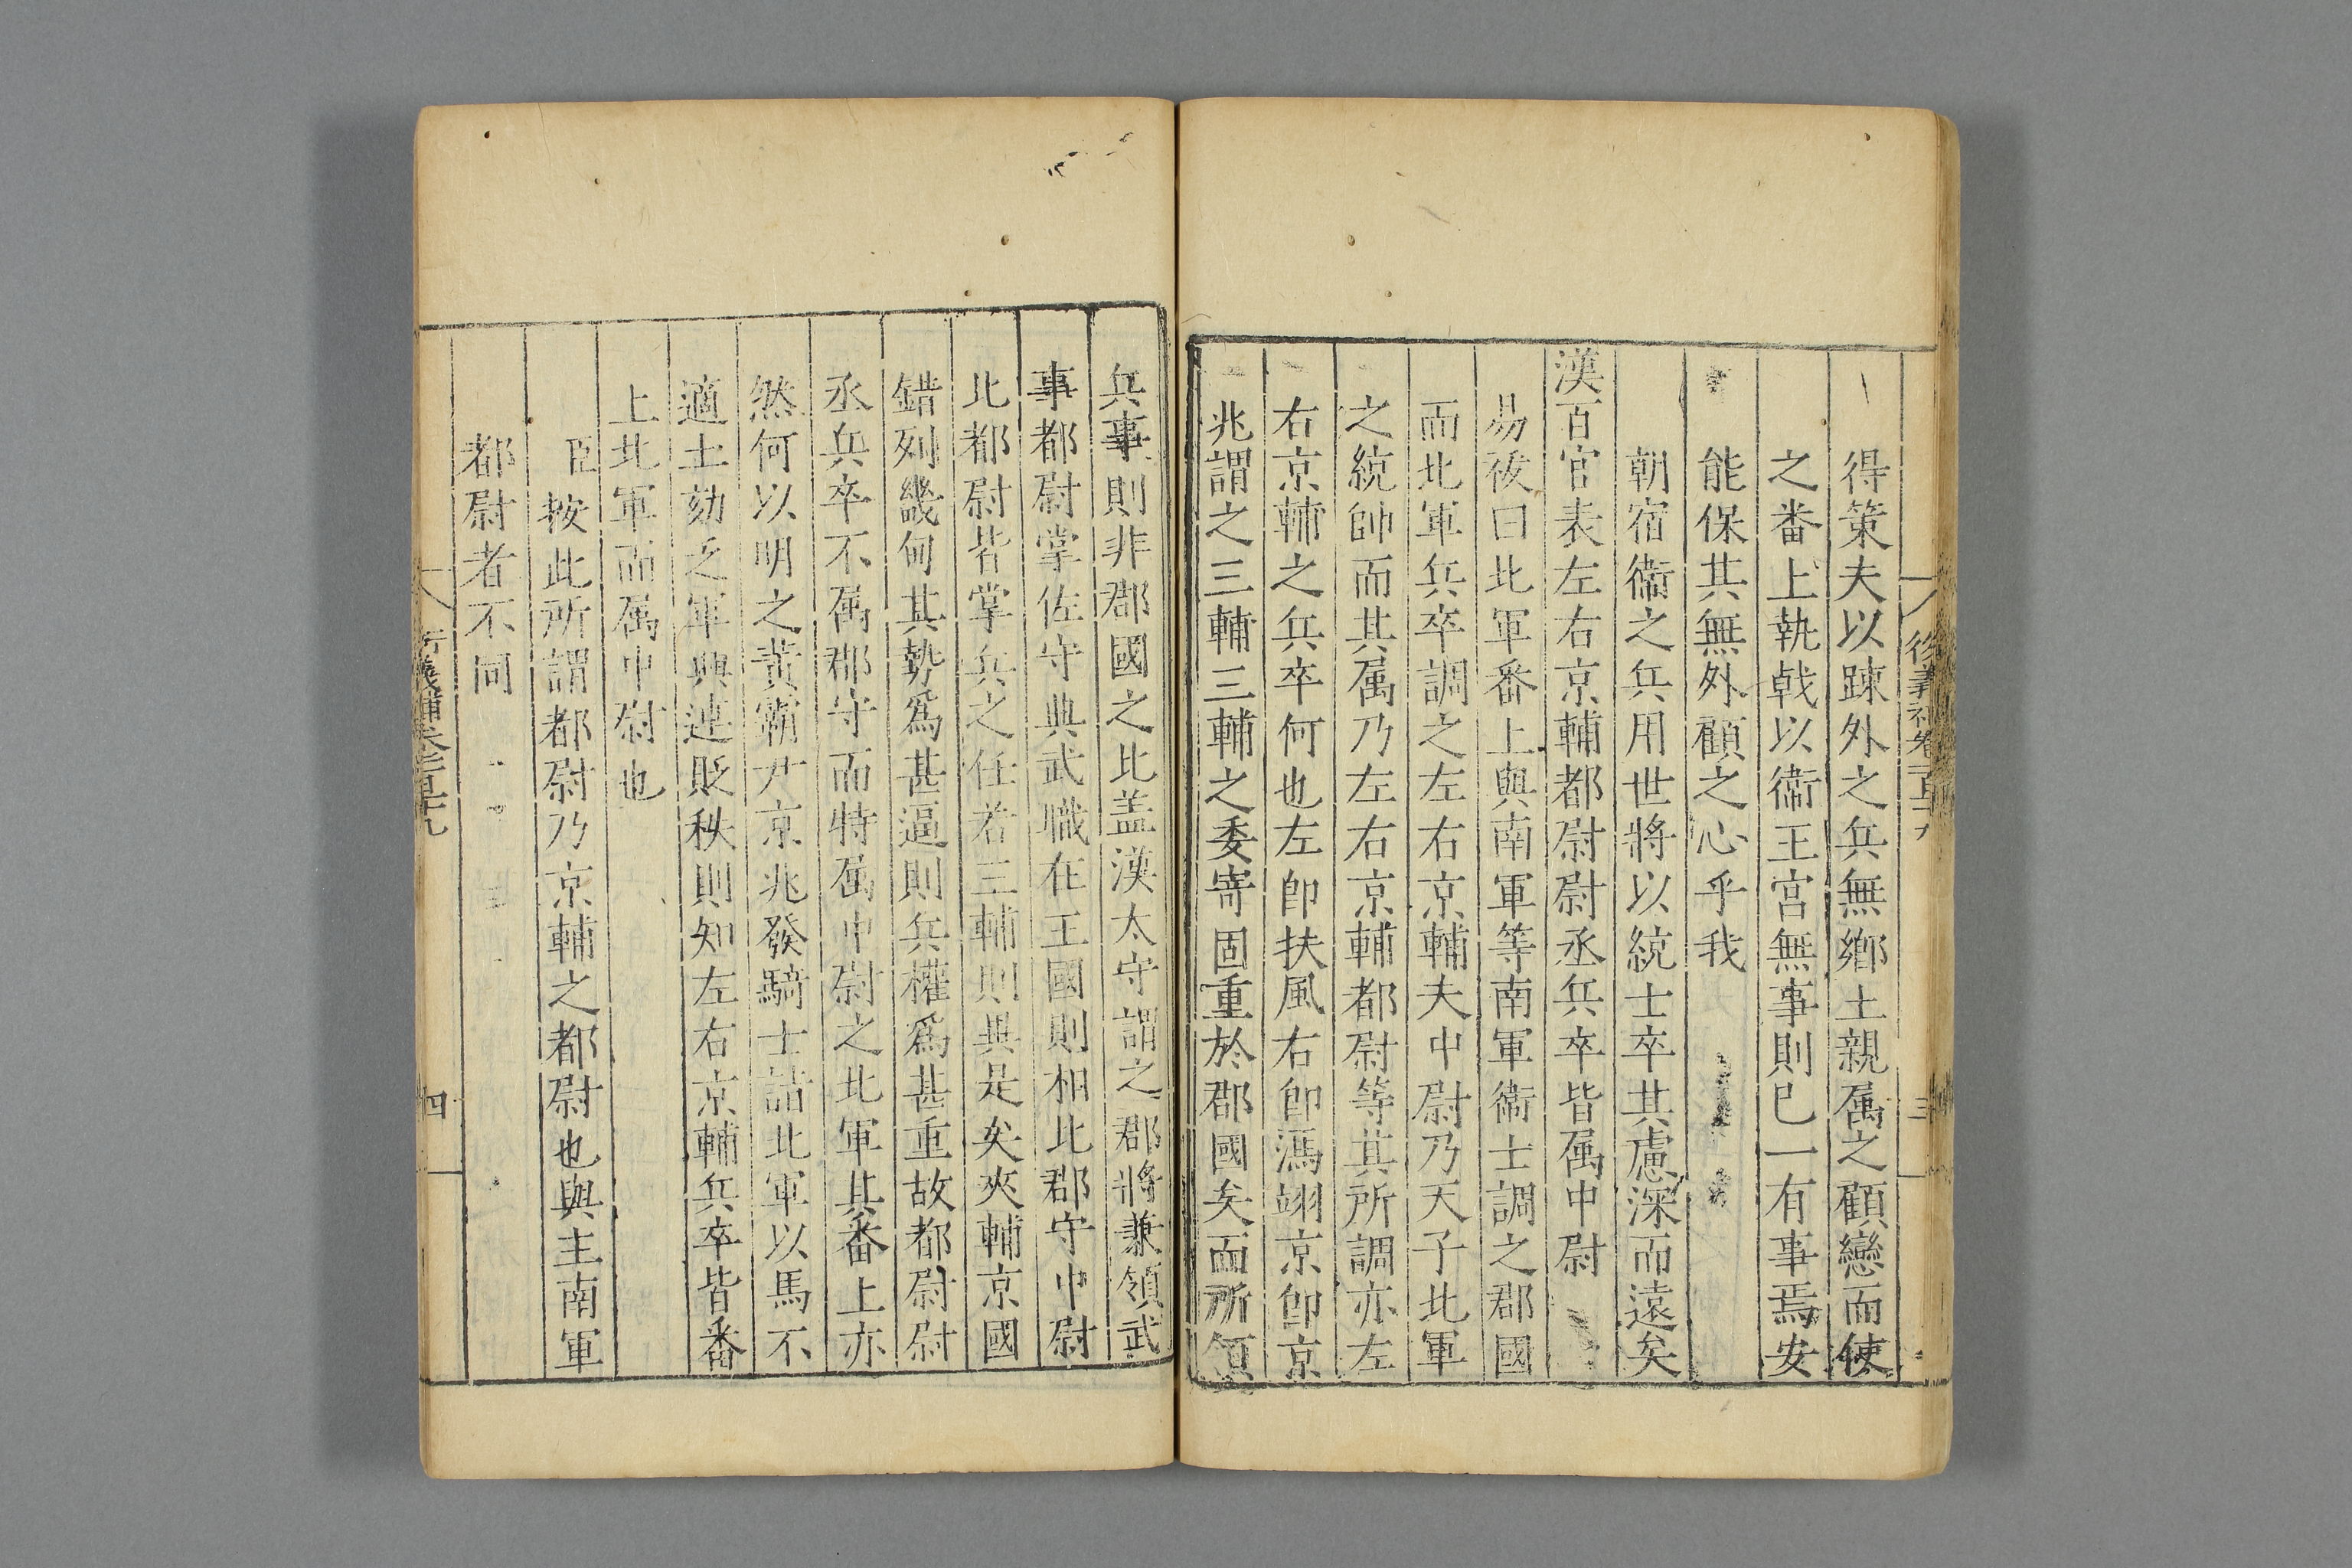 得策夫以踈外之兵無鄉土親属之顧戀而使
之番上執戟以衞王宮無事則已一有事焉安
能保其無外顧之心乎我
朝宿衞之兵用世將以統士卒其慮深而遠矣
漢百官表左右京輔都尉尉丞兵卒皆属中尉
易祓曰北軍番上與南軍等南軍衞士調之郡國
而北軍兵卒調之左右京輔夫中尉乃天子北軍
之統帥而其属乃左右京輔都尉等其所調亦左
右京輔之兵卒何也左卽扶風右卽馮翊京卽京
兆謂之三輔三輔之委寄固重於郡國矣而所領
兵事則非郡國之比盖漢太守謂之郡將兼領武
事都尉掌佐守典武職在王國則相比郡守中尉
比都尉皆掌兵之任若三輔則異是矣夾輔京國
錯列畿甸其勢爲甚逼則兵權爲甚重故都尉尉
丞兵卒不属郡守而特属中尉之北軍其番上亦
然何以明之黃霸尹京兆發騎士詣北軍以馬不
適士劾乏軍興連貶秩則知左右京輔兵卒皆番
上北軍而属中尉也
臣按此所謂都尉乃京輔之都尉也與主南軍
都尉者不同
衍義補卷之百十九
四